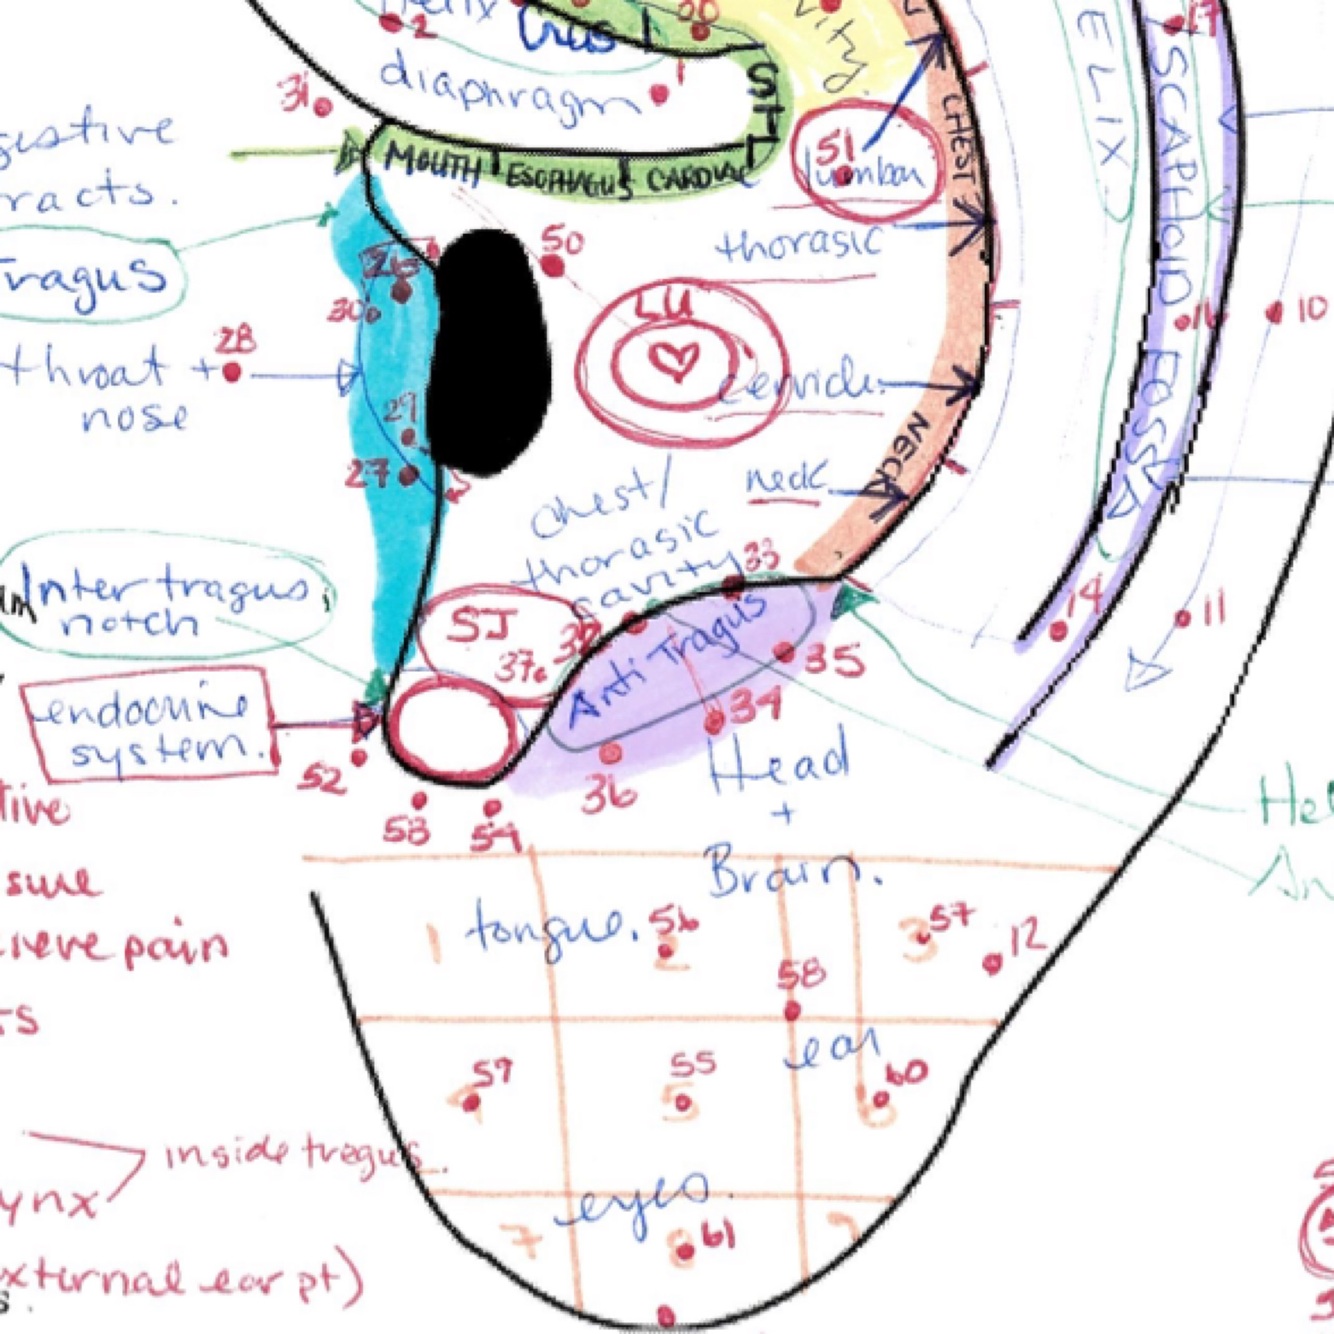 2
Crus
diaphragm
31
1
ST
MOUTH
ESOPHAGUS
CARDIAC
vity.
51
lumbar
CHEST
ELIX
SCAPHOID FOSSA
17
gestive
racts.
Tragus
26
30
28
throat +
nose
29
27
50
LU
thorasic
cervicle.
neck
NECK
16
10
chest/
thorasic
cavity
33
Inter tragus
notch
SJ
37
32
Anti Tragus
35
34
36
14
11
endocrine
system.
52
53
54
Head
+
Brain.
Hel
An
tive
sure
ieve pain
ts
1
tongue.
56
2
3
57
12
58
ear
59
4
55
5
60
6
inside tragus.
ynx
xternal ear pt)
s.
eyes.
7
8
61